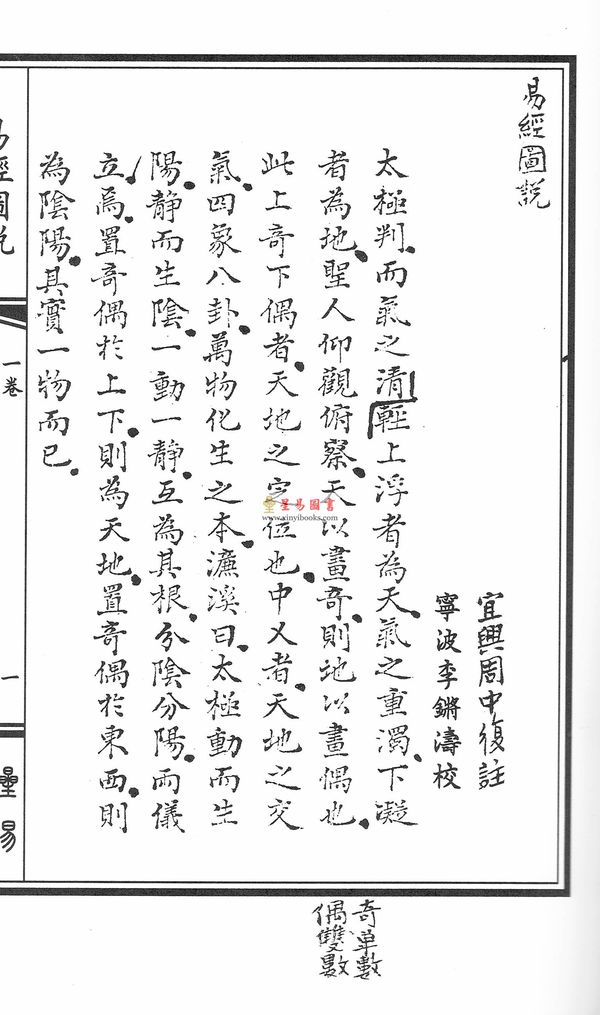 易經圖説
宜興周中復註
寧波李鏘濤校
太極判而氣之清輕上浮者為天氣之重濁下凝
者為地聖人仰觀俯察天以畫奇則地以畫偶也
此上奇下偶者天地之定位也中乂者天地之交
氣四象八卦萬物化生之本濂溪曰太極動而生
陽静而生陰一動一静互為其根分陰分陽兩儀
立焉置奇偶於上下則為天地置奇偶於東西則
為陰陽其實一物而已
易經圖説
一卷
一
星易
奇單數
偶雙數
星易圖書
www.xinyibooks.com